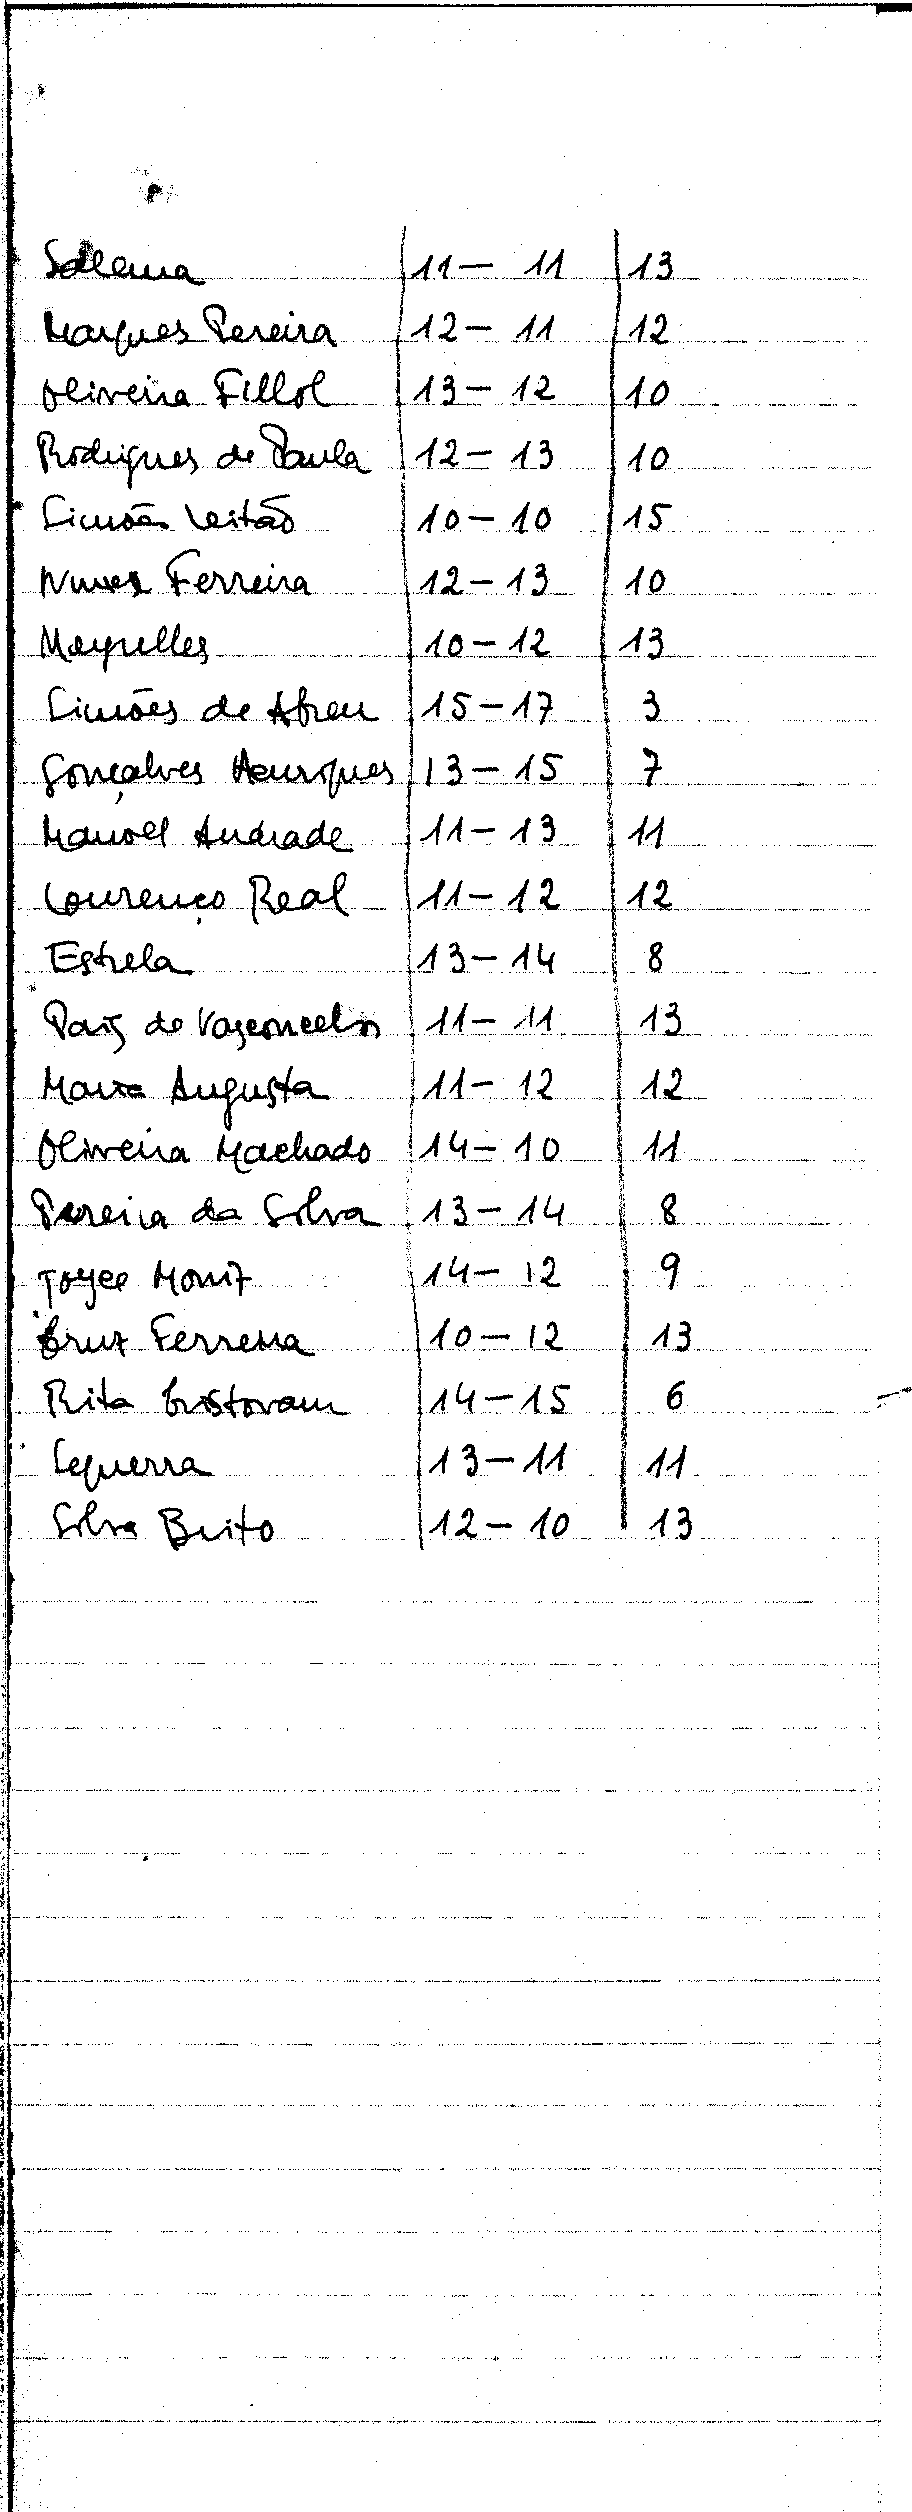 Salema 11 - 11 13
Marques Pereira 12 - 11 12
Oliveira Fillol 13 - 12 10
Rodrigues de Paula 12 - 13 10
Simões Leitão 10 - 10 15
Nunes Ferreira 12 - 13 10
Meyrelles 10 - 12 13
Simões de Abreu 15 - 17 3
Gonçalves Henriques 13 - 15 7
Manoel Andrade 11 - 13 11
Lourenço Real 11 - 12 12
Estrela 13 - 14 8
Pais de Vasconcelos 11 - 11 13
Maria Augusta 11 - 12 12
Oliveira Machado 14 - 10 11
Pereira da Silva 13 - 14 8
Joyce Moniz 14 - 12 9
Cruz Ferreira 10 - 12 13
Rita Cristovam 14 - 15 6
Sequerra 13 - 11 11
Silva Brito 12 - 10 13